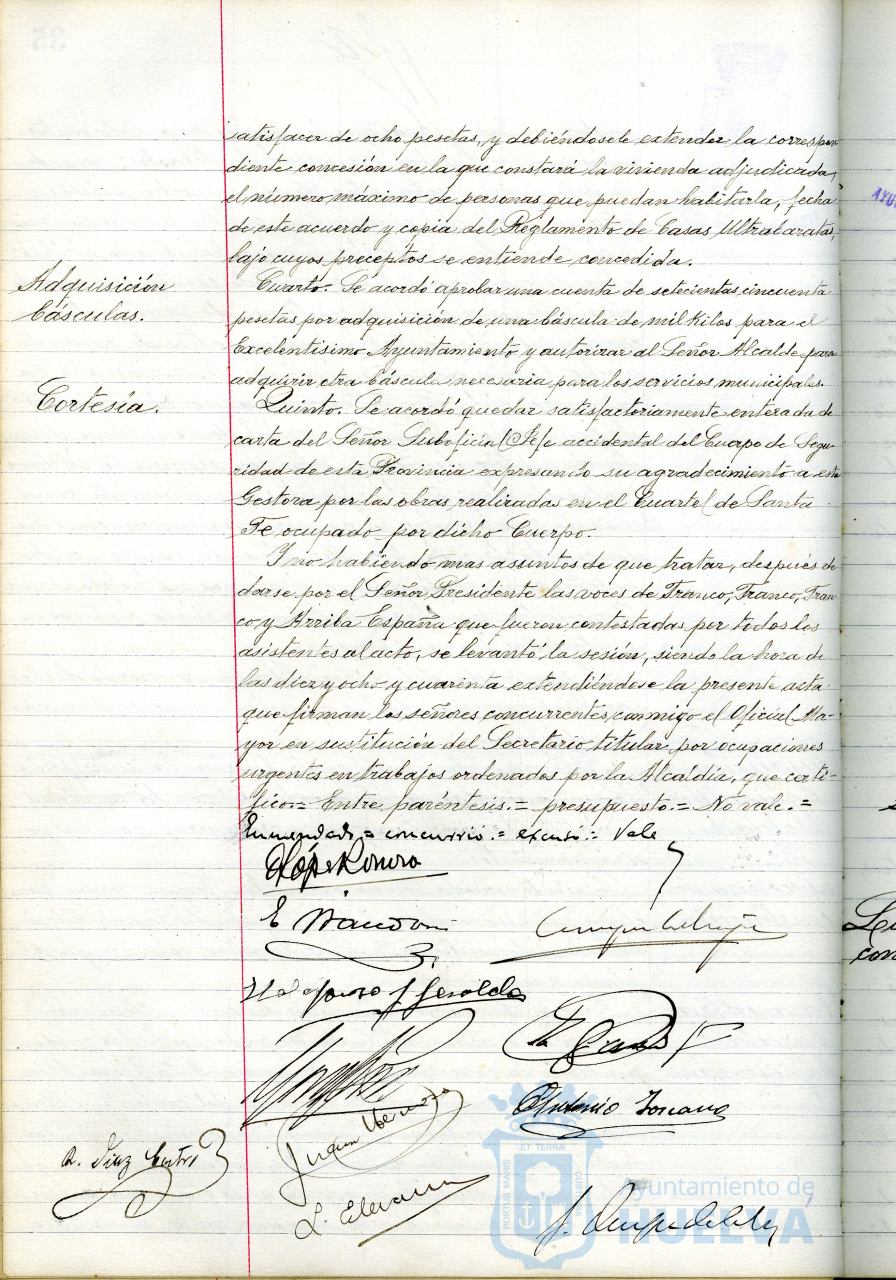 satisfacer de ocho pesetas, y debiéndosele extender la correspon
diente concesión en la que constará la vivienda adjudicada,
el número máximo de personas que puedan habitarla, fecha
de este acuerdo y copia del Reglamento de Casas Ultrabaratas,
bajo cuyos preceptos se entiende concedida.
Adquisición
básculas.
Cuarto. Se acordó aprobar una cuenta de setecientas cincuenta
pesetas por adquisición de una báscula de mil kilos para el
Excelentísimo Ayuntamiento y autorizar al Señor Alcalde para
adquirir otra báscula necesaria para los servicios municipales.
Cortesía.
Quinto. Se acordó quedar satisfactoriamente enterada de
carta del Señor Suboficial Jefe accidental del Cuerpo de Segu-
ridad de esta Provincia expresando su agradecimiento a esta
Gestora por las obras realizadas en el Cuartel de Santa
Fe ocupado por dicho Cuerpo.
Y no habiendo mas assuntos de que tratar, después de
darse por el Señor Presidente las voces de Franco, Franco, Fran-
co, y Arriba España que fueron contestadas por todos los
asistentes al acto, se levantó la sesión, siendo la hora de
las diez y ocho y cuarenta extendiéndose la presente acta
que firman los señores concurrentes, conmigo el Oficial Ma-
yor en sustitución del Secretario titular por ocupaciones
urgentes en trabajos ordenados por la Alcaldía, que certi-
fico.= Entre paréntesis.= presupuesto.= No vale.=
Enmendado = concurrió.= excusó.= Vale
E
Antonio Toscano
R. Díaz
Juan
L.
J.
ET TERRÆ
PORTUS MARIS
CUSTODIA
Ayuntamiento de
HUELVA
35